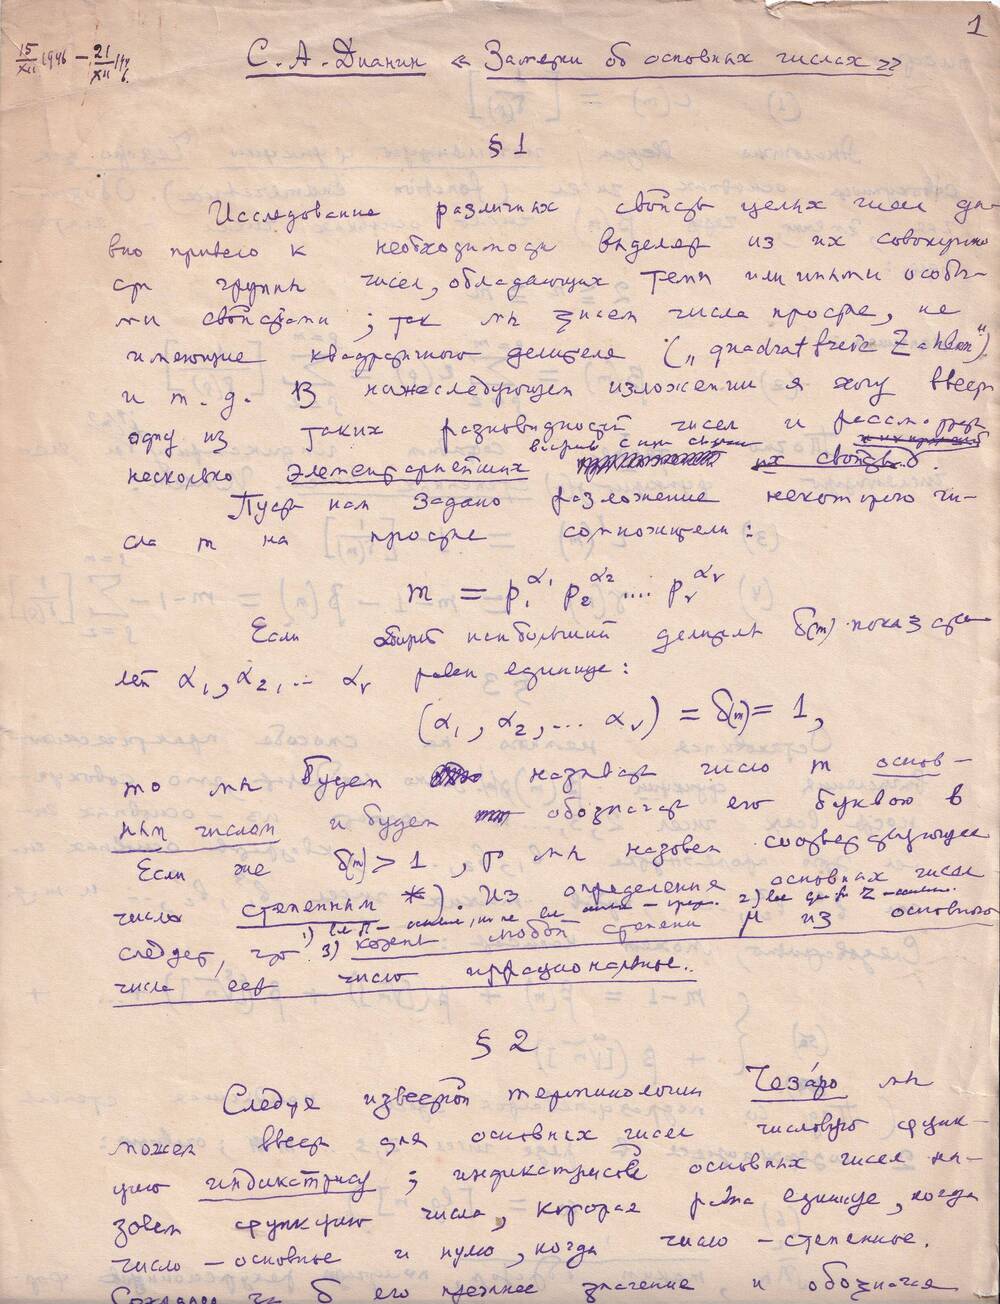 1
15/XII 1946 — 21/XII 1946.
С. А. Дианин « Заметки об основных числах »
§ 1
Исследование различных свойств целых чисел да-
вно привело к необходимости выделять из их совокупно-
сти группы чисел, обладающих теми или иными особы-
ми свойствами; так мы знаем числа простые, не
имеющие квадратичного делителя („quadratfreie Zahlen“)
и т. д. В нижеследующем изложении я хочу ввести
одну из таких разновидностей чисел и рассмотреть
несколько элементарнейших их свойств.
Пусть нам задано разложение некоторого чи-
сла m на простые сомножители:
m = p₁^α₁ p₂^α₂ .... pᵥ^αᵥ
Если общий наибольший делитель δ(m) показате-
лей α₁, α₂, ... αᵥ равен единице:
(α₁, α₂, ... αᵥ) = δ(m) = 1,
то мы будем называть число m основ-
ным числом и будем обозначать его буквою в
Если же δ(m) > 1, то мы назовем соответствующее
число степенным *). Из определения основных чисел
следует, что 3) корень любой степени μ из основного
числа есть число иррациональное.
§ 2
Следуя известной терминологии Чеза́ро мы
можем ввести для основных чисел числовую функ-
цию индикатрису; индикатрисою основных чисел на-
зовем функцию числа, которая равна единице, когда
число – основное и нулю, когда число – степенное.
Сохраняя за δ его прежнее значение, и обозначая